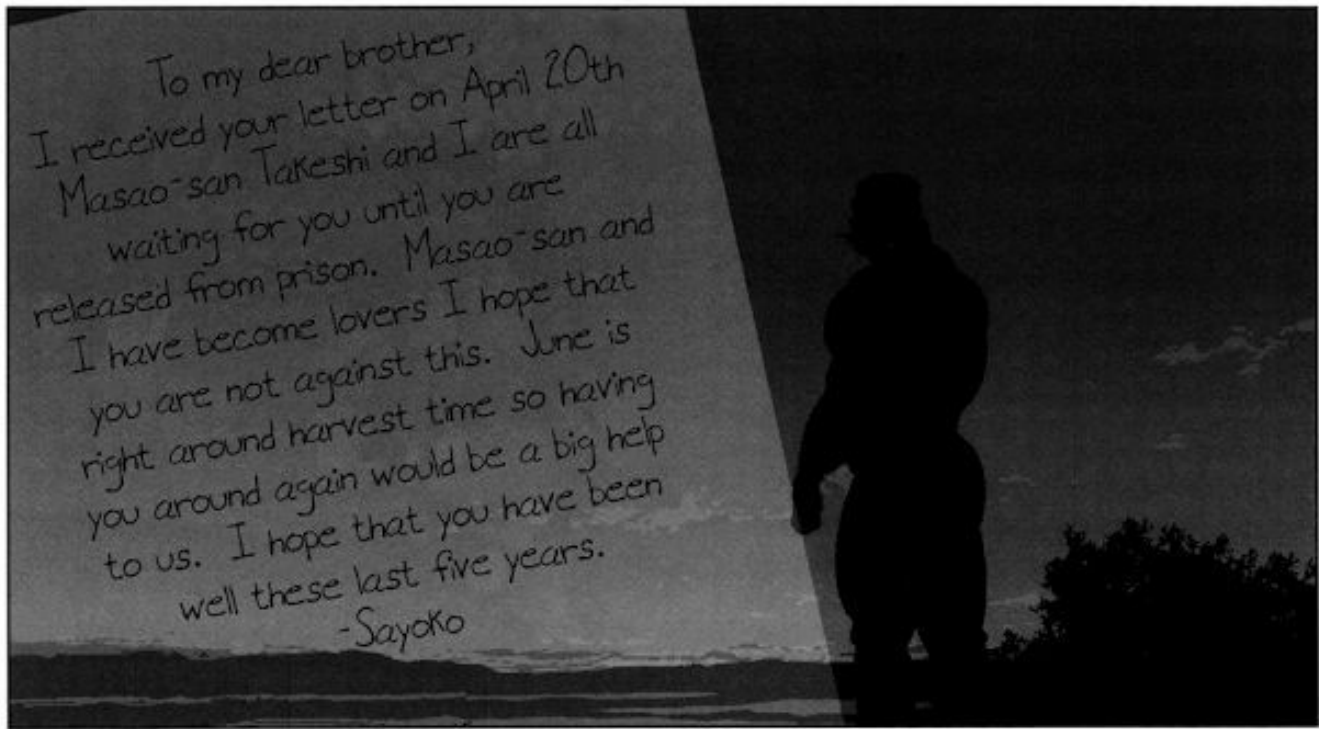 To my dear brother,
I received your letter on April 20th
Masao-san Takeshi and I are all
waiting for you until you are
released from prison. Masao-san and
I have become lovers I hope that
you are not against this. June is
right around harvest time so having
you around again would be a big help
to us. I hope that you have been
well these last five years.
-Sayoko